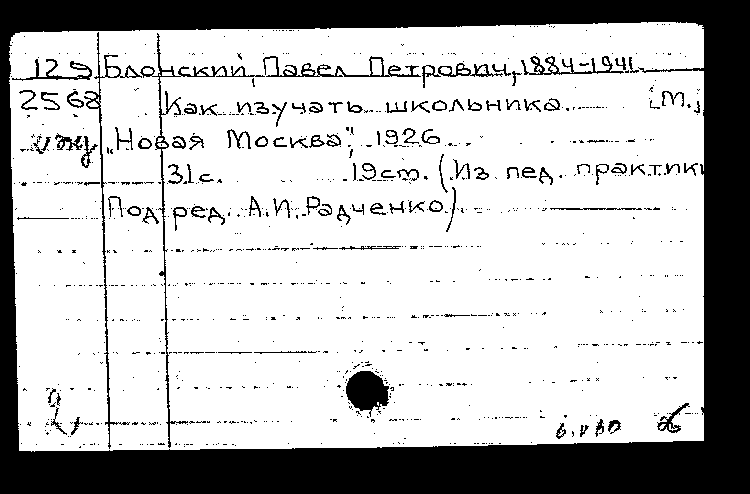 129 Блонский, Павел Петрович, 1884-1941.
2568 Как изучать школьника. [М.,
"Новая Москва", 1926.
31с. 19ст. (Из пед. практики
Под ред. А.И. Радченко).
2,